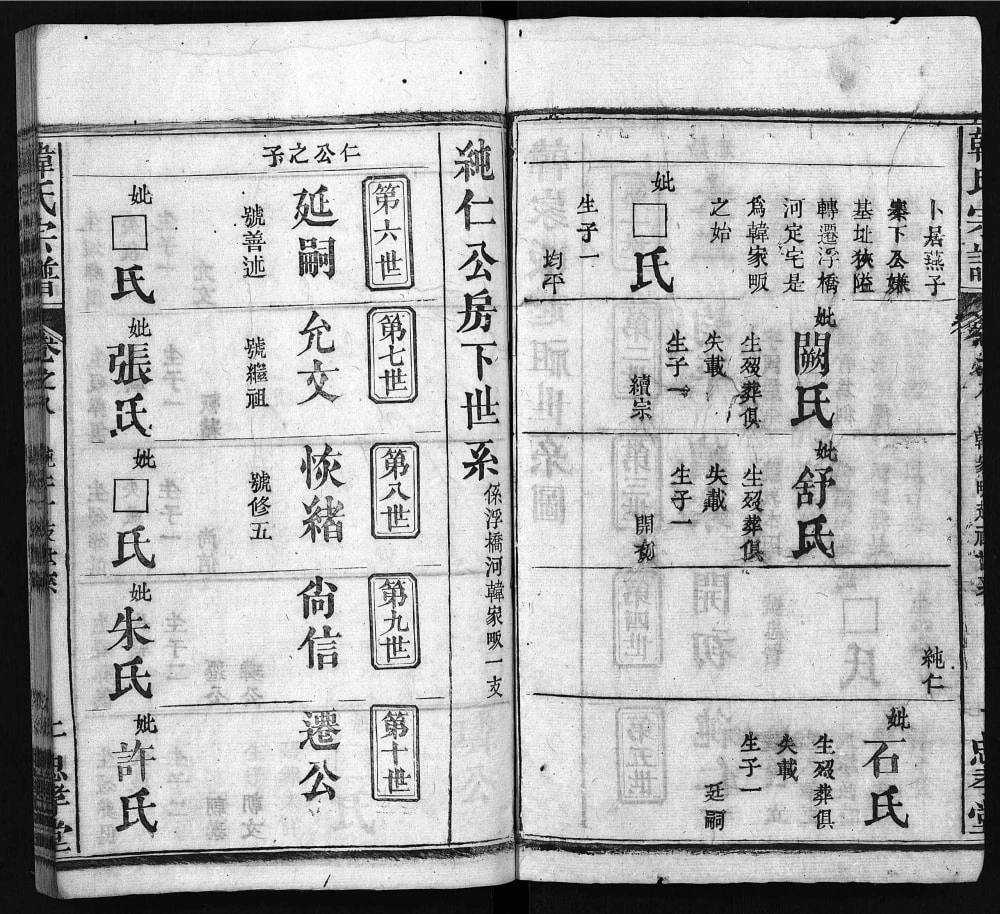 卜居燕子
寨下公嫌
基址狹隘
轉遷浮橋
河定宅是
為韓家畈
之始
妣□氏
生子一
均平
妣闕氏
生殁葬俱
失載
生子一
續宗
妣舒氏
生殁葬俱
失載
生子一
開初
純仁
妣石氏
生殁葬俱
失載
生子一
延嗣
純仁公房下世系
係浮橋河韓家畈一支
仁公之子
第六世
延嗣
號善述
妣□氏
第七世
允文
號繼祖
妣張氏
第八世
恢緒
號修五
妣□氏
第九世
尚信
妣朱氏
第十世
遷公
妣許氏
韓氏宗譜
卷之八
忠孝堂